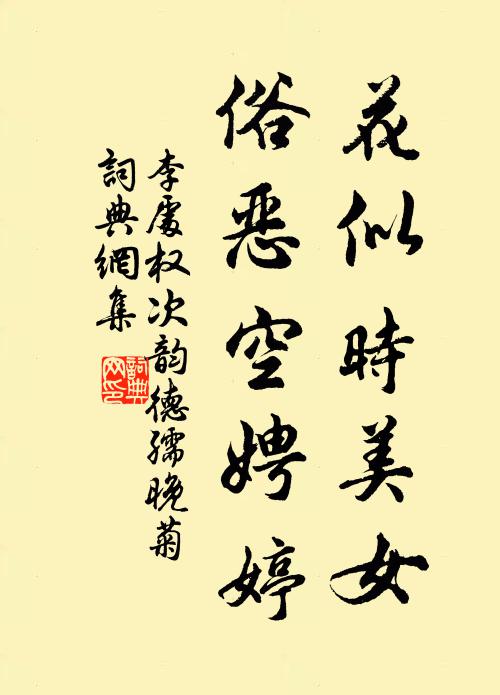 花似時美女
俗惡空娉婷
李處权次韵德孺晚菊
詞典網集
詞典
网印